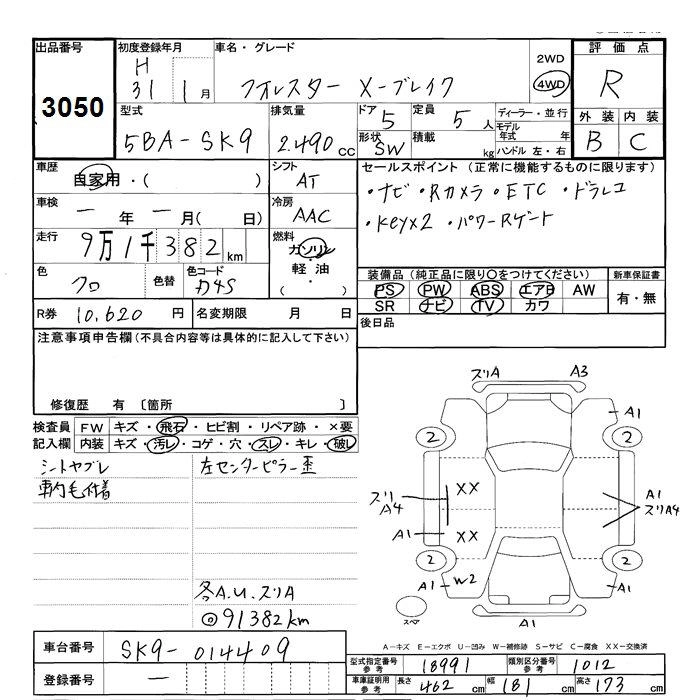 出品番号
3050
初度登録年月
H 31 1月
車名・グレード
フォレスター X-ブレイク
2WD
4WD
評価点
R
外装 内装
B C
型式
5BA-SK9
排気量
2.490 cc
ドア 5
形状 SW
定員 5人
積載 kg
ディーラー・並行
モデル年式 年
ハンドル 左・右
車歴
自家用・( )
シフト
AT
車検
一 年 一 月( 日)
冷房
AAC
走行
9万1千382km
燃料
ガソリン
軽油
( ・ )
色
クロ
色替
色コード
D4S
R券 10,620 円
名変期限 月 日
セールスポイント (正常に機能するものに限ります)
・ナビ・Rカメラ・ETC・ドラレコ
・keyx2・パワーRゲート
装備品(純正品に限り○をつけてください)
PS PW ABS エアB AW
SR ナビ TV カワ
新車保証書
有・無
後日品
注意事項申告欄(不具合内容等は具体的に記入して下さい)
修復歴 有 〔箇所 〕
検査員 FW キズ・飛石・ヒビ割・リペア跡・×要
記入欄 内装 キズ・汚レ・コゲ・穴・スレ・キレ・破レ
シートヤブレ
車内毛付着
左センターピラー歪
各A.U.スリA
◎91382km
スリA A3
A1
2 2
XX
スリ A4
A1 スリA4
A1 XX
2 2
A1 W2
A1
スペア
A1
A-キズ E-エクボ U-凹み W-補修跡 S-サビ C-腐食 XX-交換済
車台番号 SK9-014409
登録番号 一
型式指定番号 参考 18991
類別区分番号 参考 1012
車庫証明用 参考 長さ 462 cm 幅 181 cm 高さ 173 cm